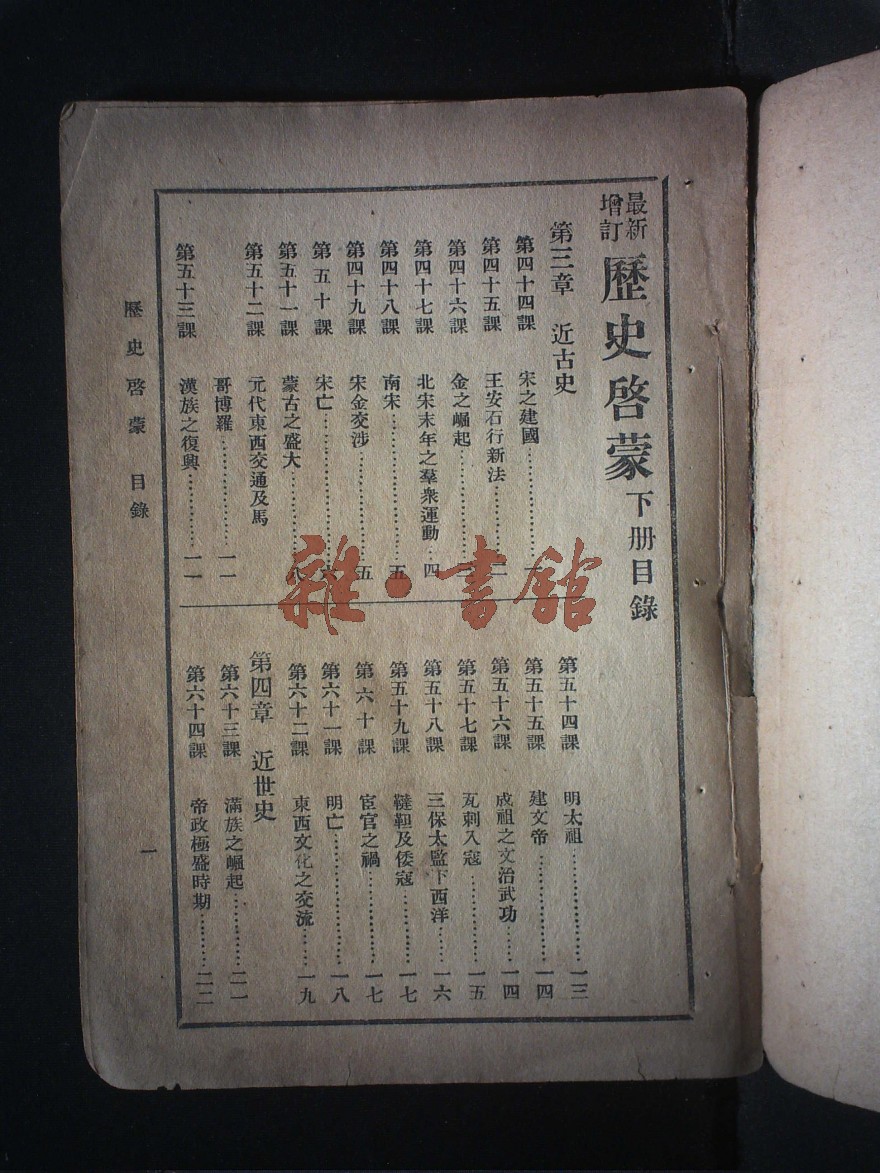 最新增訂 歷史啓蒙 下册目錄
第三章 近古史
第四十四課 宋之建國………一
第四十五課 王安石行新法………二
第四十六課 金之崛起………
第四十七課 北宋末年之羣衆運動…四
第四十八課 南宋………五
第四十九課 宋金交涉………五
第五十課 宋亡………六
第五十一課 蒙古之盛大………八
第五十二課 元代東西交通及馬
哥博羅………一一
第五十三課 漢族之復興………一一
第五十四課 明太祖………一三
第五十五課 建文帝………一四
第五十六課 成祖之文治武功……一四
第五十七課 瓦刺入寇………一五
第五十八課 三保太監下西洋……一六
第五十九課 韃靼及倭寇………一七
第六十課 宦官之禍………一七
第六十一課 明亡………一八
第六十二課 東西文化之交流……一九
第四章 近世史
第六十三課 滿族之崛起………二一
第六十四課 帝政極盛時期………二二
歷史啓蒙 目錄
一
雜·書館